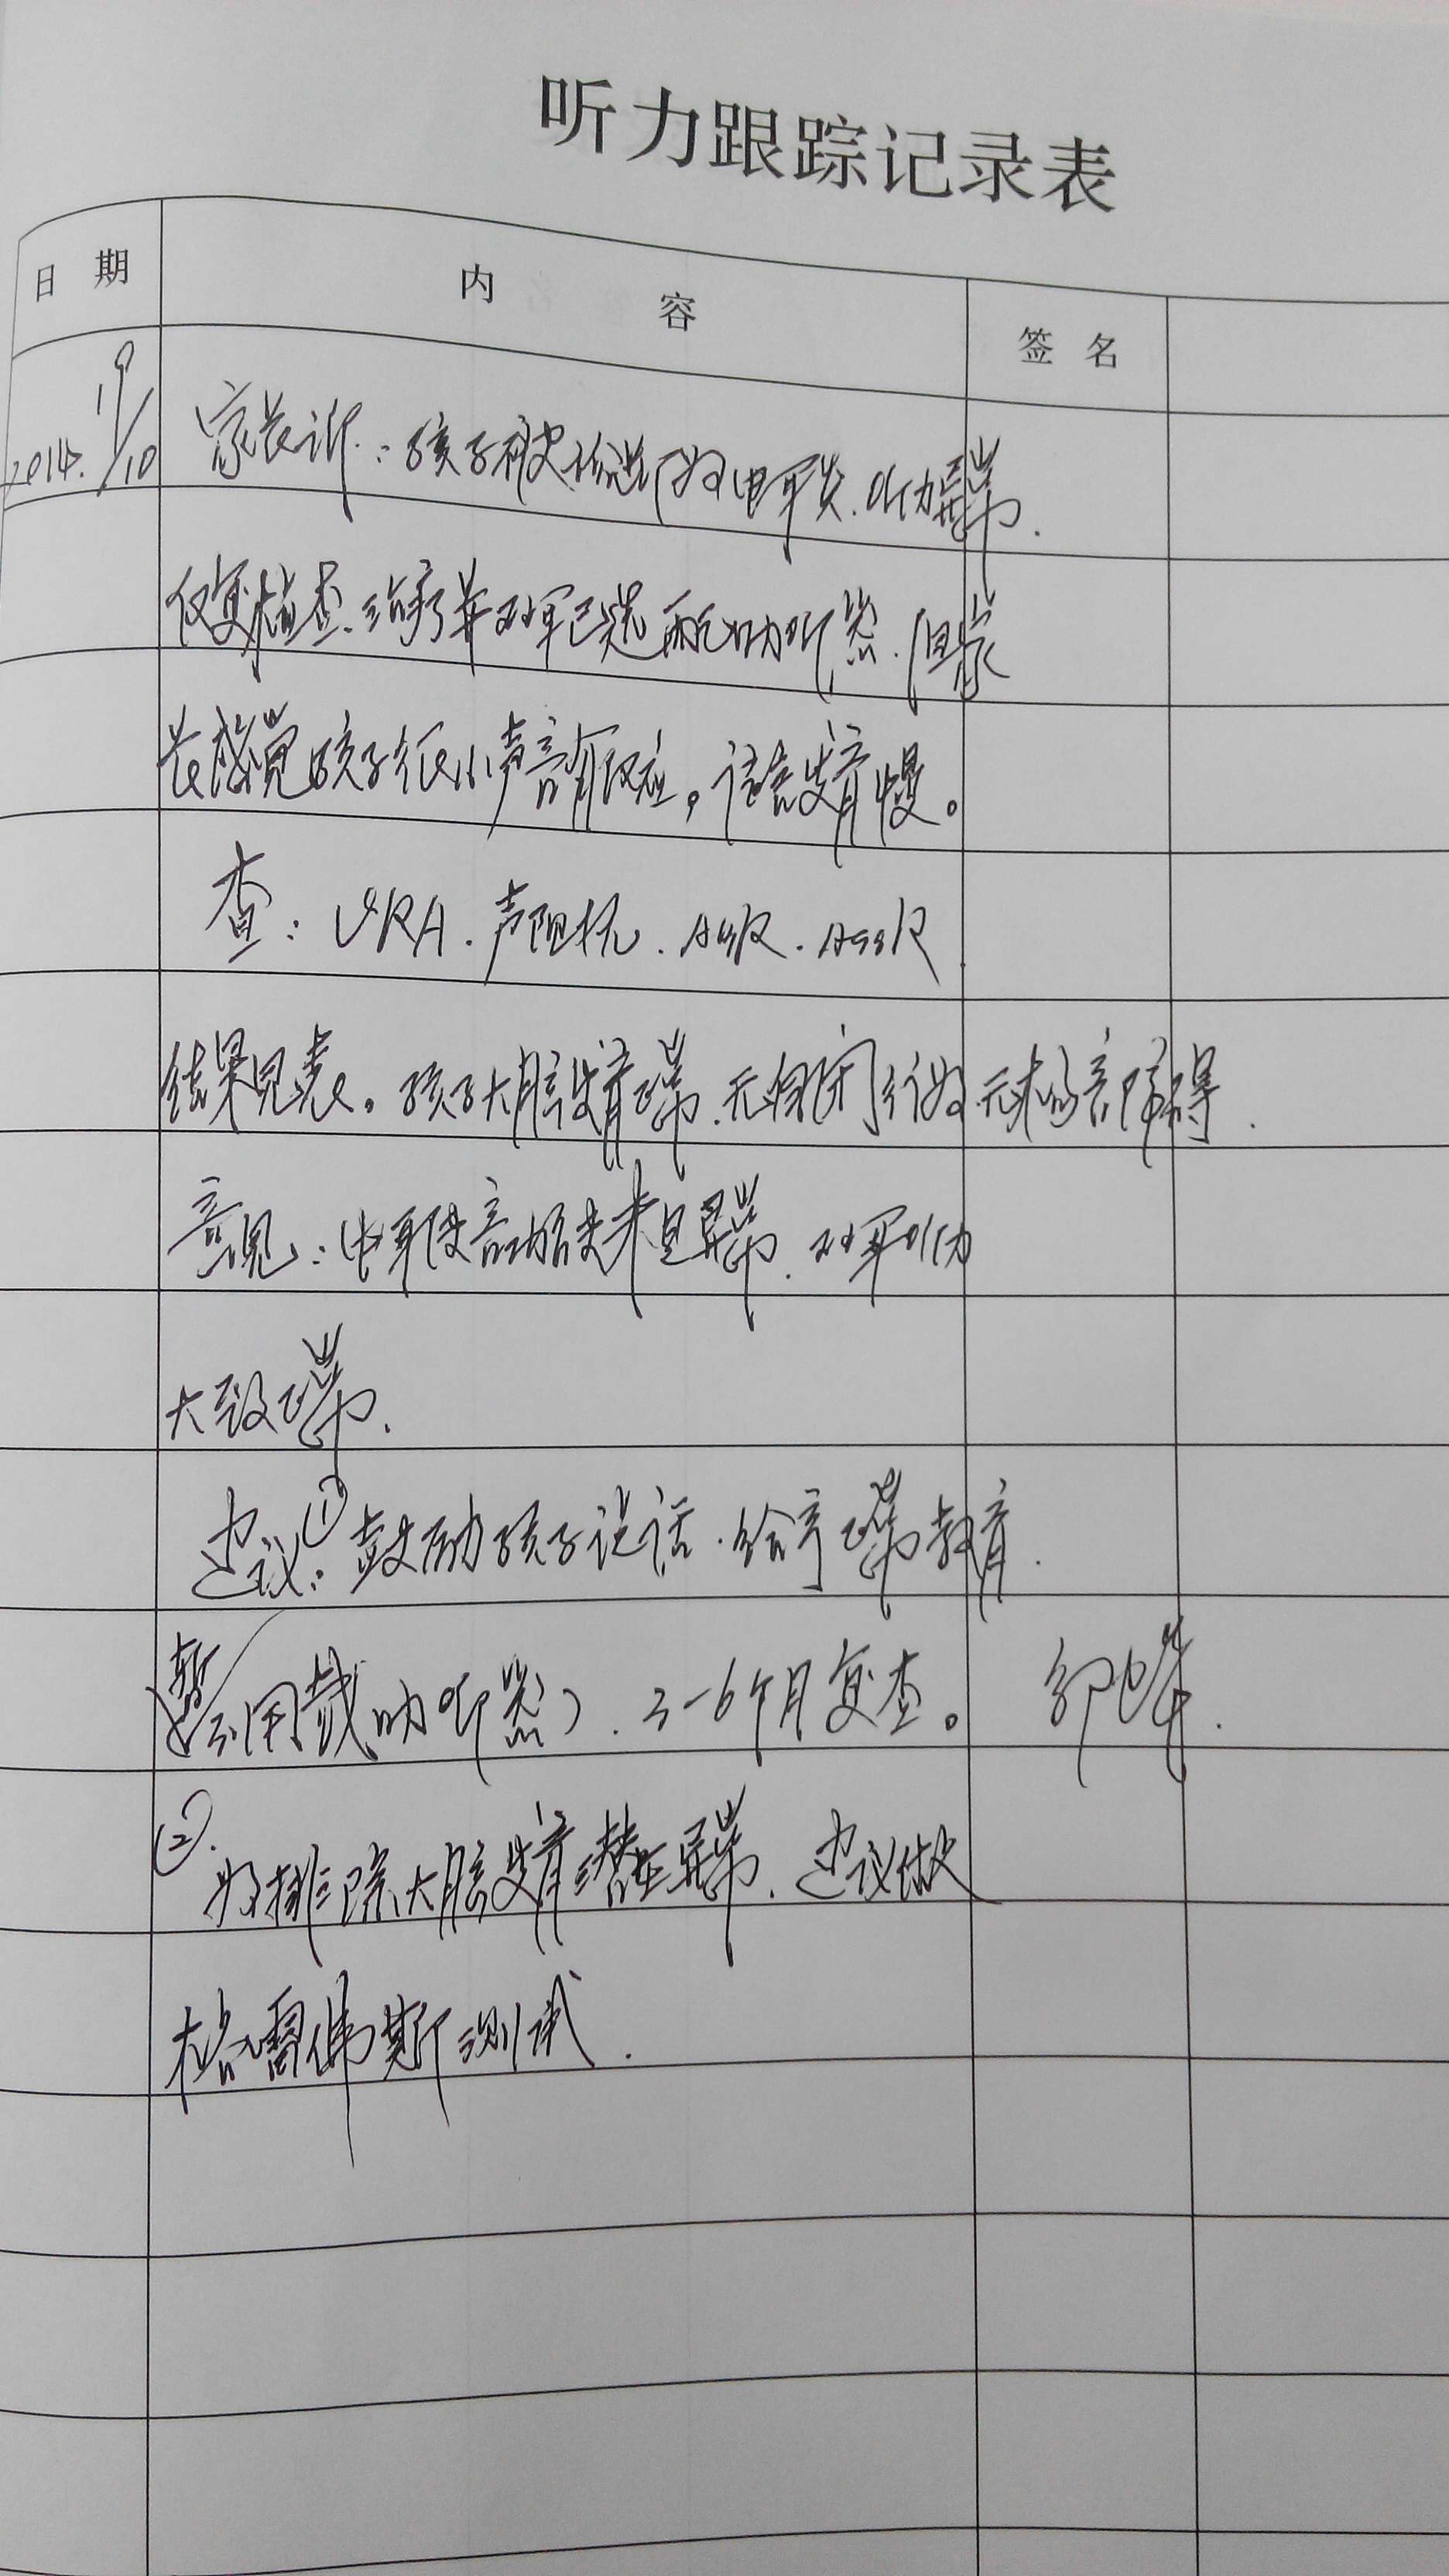 听力跟踪记录表
日期 内容 签名
2014. 19/10 家长诉:孩子被诊断为中耳炎.听力异常.
复检查.给予并双耳已选配助听器.但家
长感觉孩子很小声音有反应。语言发育慢。
查:VRA.声阻抗.ABR.ASSR
结果见表。孩子大脑发育正常.无自闭行为.无构音障碍.
意见:中耳传音功能未见异常.双耳听力
大致正常.
建议:①鼓励孩子说话.给予正常教育.
(暂不用戴助听器).3-6个月复查。
②.为排除大脑发育潜在异常.建议做
格雷费斯测试.